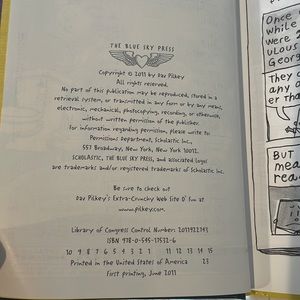 THE BLUE SKY PRESS
Copyright © 2011 by Dav Pilkey
All rights reserved.
No part of this publication may be reproduced, stored in a
retrieval system, or transmitted in any form or by any means,
electronic, mechanical, photocopying, recording, or otherwise,
without written permission of the publisher.
For information regarding permission, please write to:
Permissions Department, Scholastic Inc.,
557 Broadway, New York, New York 10012.
SCHOLASTIC, THE BLUE SKY PRESS, and associated logos
are trademarks and/or registered trademarks of Scholastic Inc.
Be sure to check out
Dav Pilkey's Extra-Crunchy Web Site O' Fun at
www.pilkey.com.
Library of Congress Control Number: 2011922743
ISBN 978-0-545-17532-6
10 9 8 7 6 5 4 3 2 1 11 12 13 14 15
Printed in the United States of America 23
First printing, June 2011
Once
while
were
ulous
Georg
They
any o
er tha
BUT
mea
rea